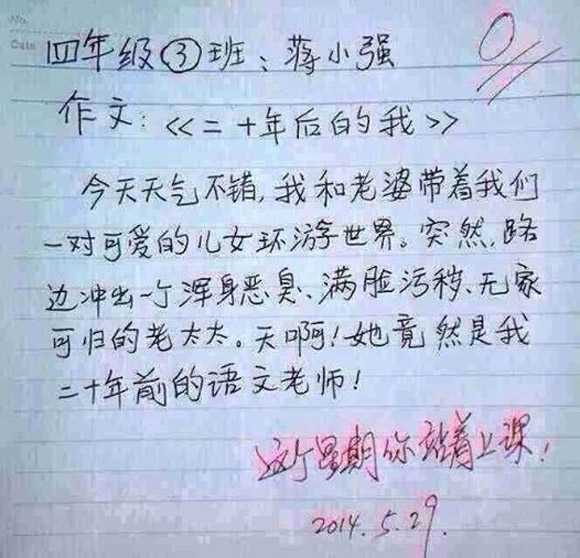 No.
Date
0
四年级③班:蒋小强
作文:<<二十年后的我>>
今天天气不错,我和老婆带着我们
一对可爱的儿女环游世界。突然,路
边冲出一个浑身恶臭、满脸污秽、无家
可归的老太太。天啊!她竟然是我
二十年前的语文老师!
这个星期你站着上课!
2014.5.29.